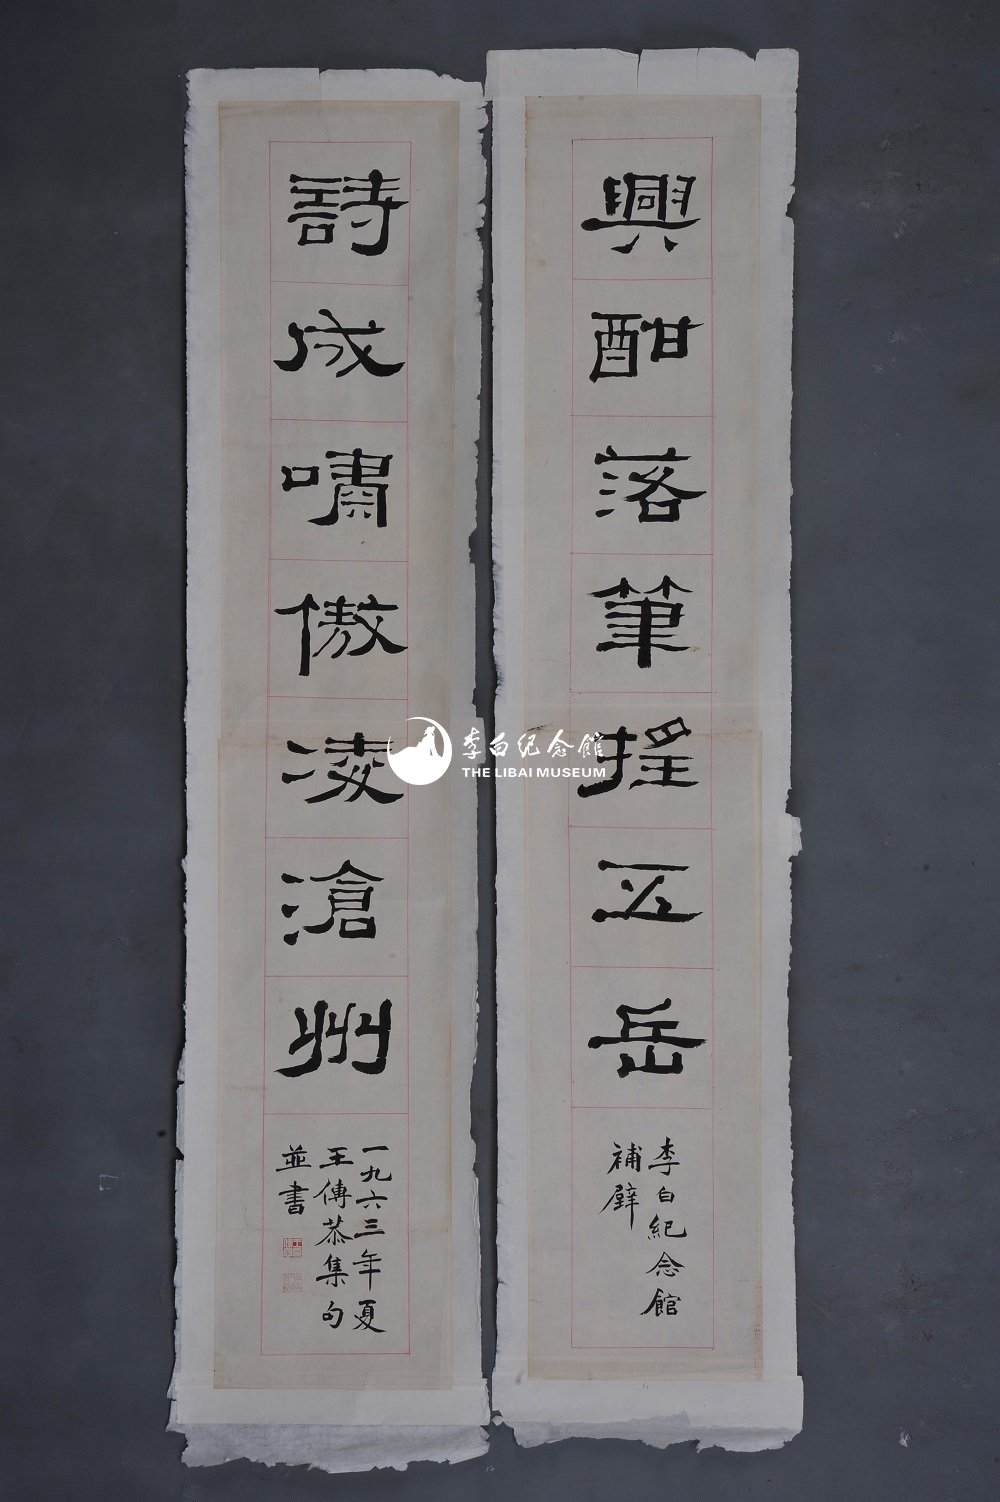 興酣落筆搖五岳
李白紀念館
補壁
詩成嘯傲凌滄州
一九六三年夏
王傳恭集句
並書
李白紀念館
THE LIBAI MUSEUM